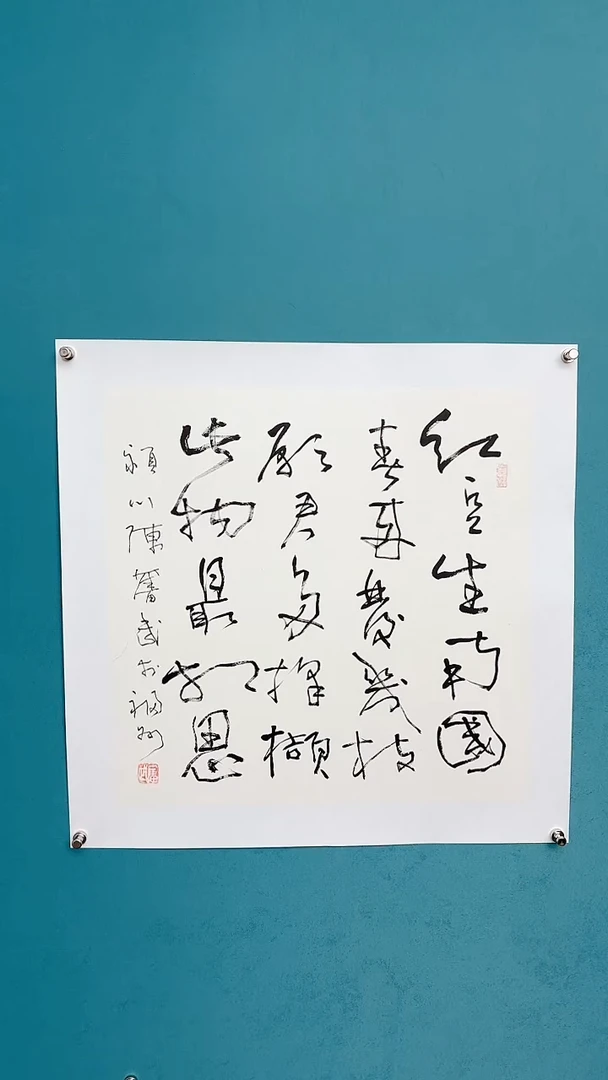 紅豆生南國
春來發幾枝
願君多採擷
此物最相思
潁川陳奮武於福州